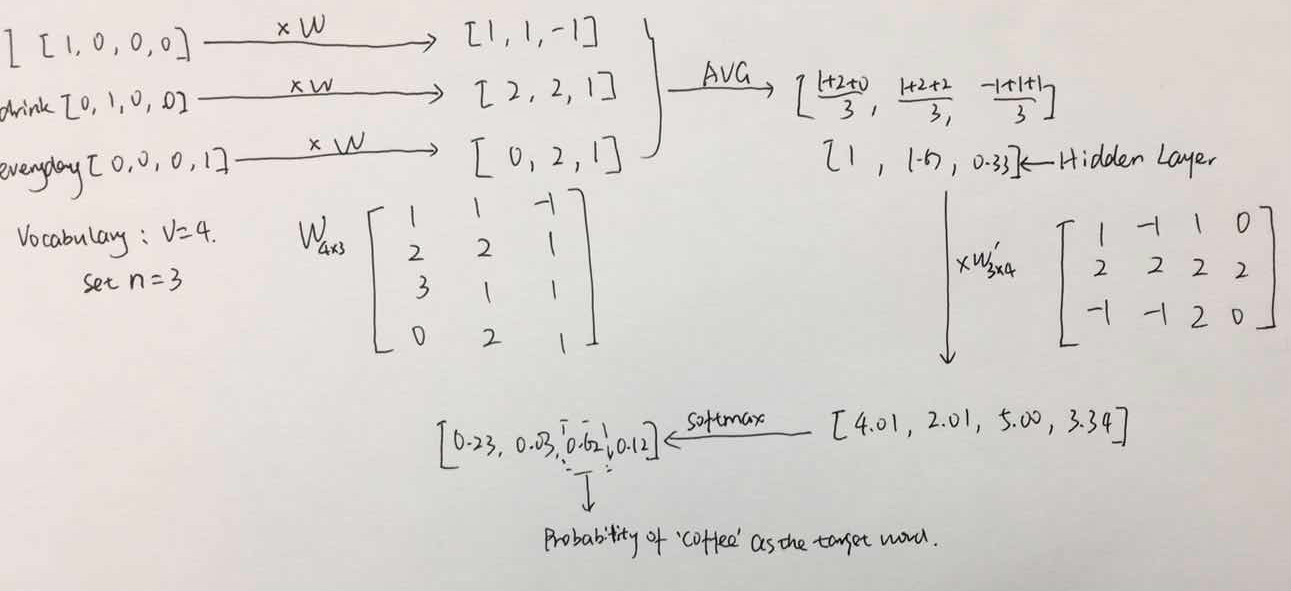 I [1, 0, 0, 0] ×W [1, 1, -1]
drink [0, 1, 0, 0] ×W [2, 2, 1]
everyday [0, 0, 0, 1] ×W [0, 2, 1]
AVG [1+2+0/3, 1+2+2/3, -1+1+1/3]
[1, 1.67, 0.33] ← Hidden Layer
Vocabulary: V=4.
set n=3
W4×3
1 1 -1
2 2 1
3 1 1
0 2 1
×W'3×4
1 -1 1 0
2 2 2 2
-1 -1 2 0
[0.23, 0.03, 0.62, 0.12] softmax [4.01, 2.01, 5.00, 3.34]
Probability of 'coffee' as the target word.